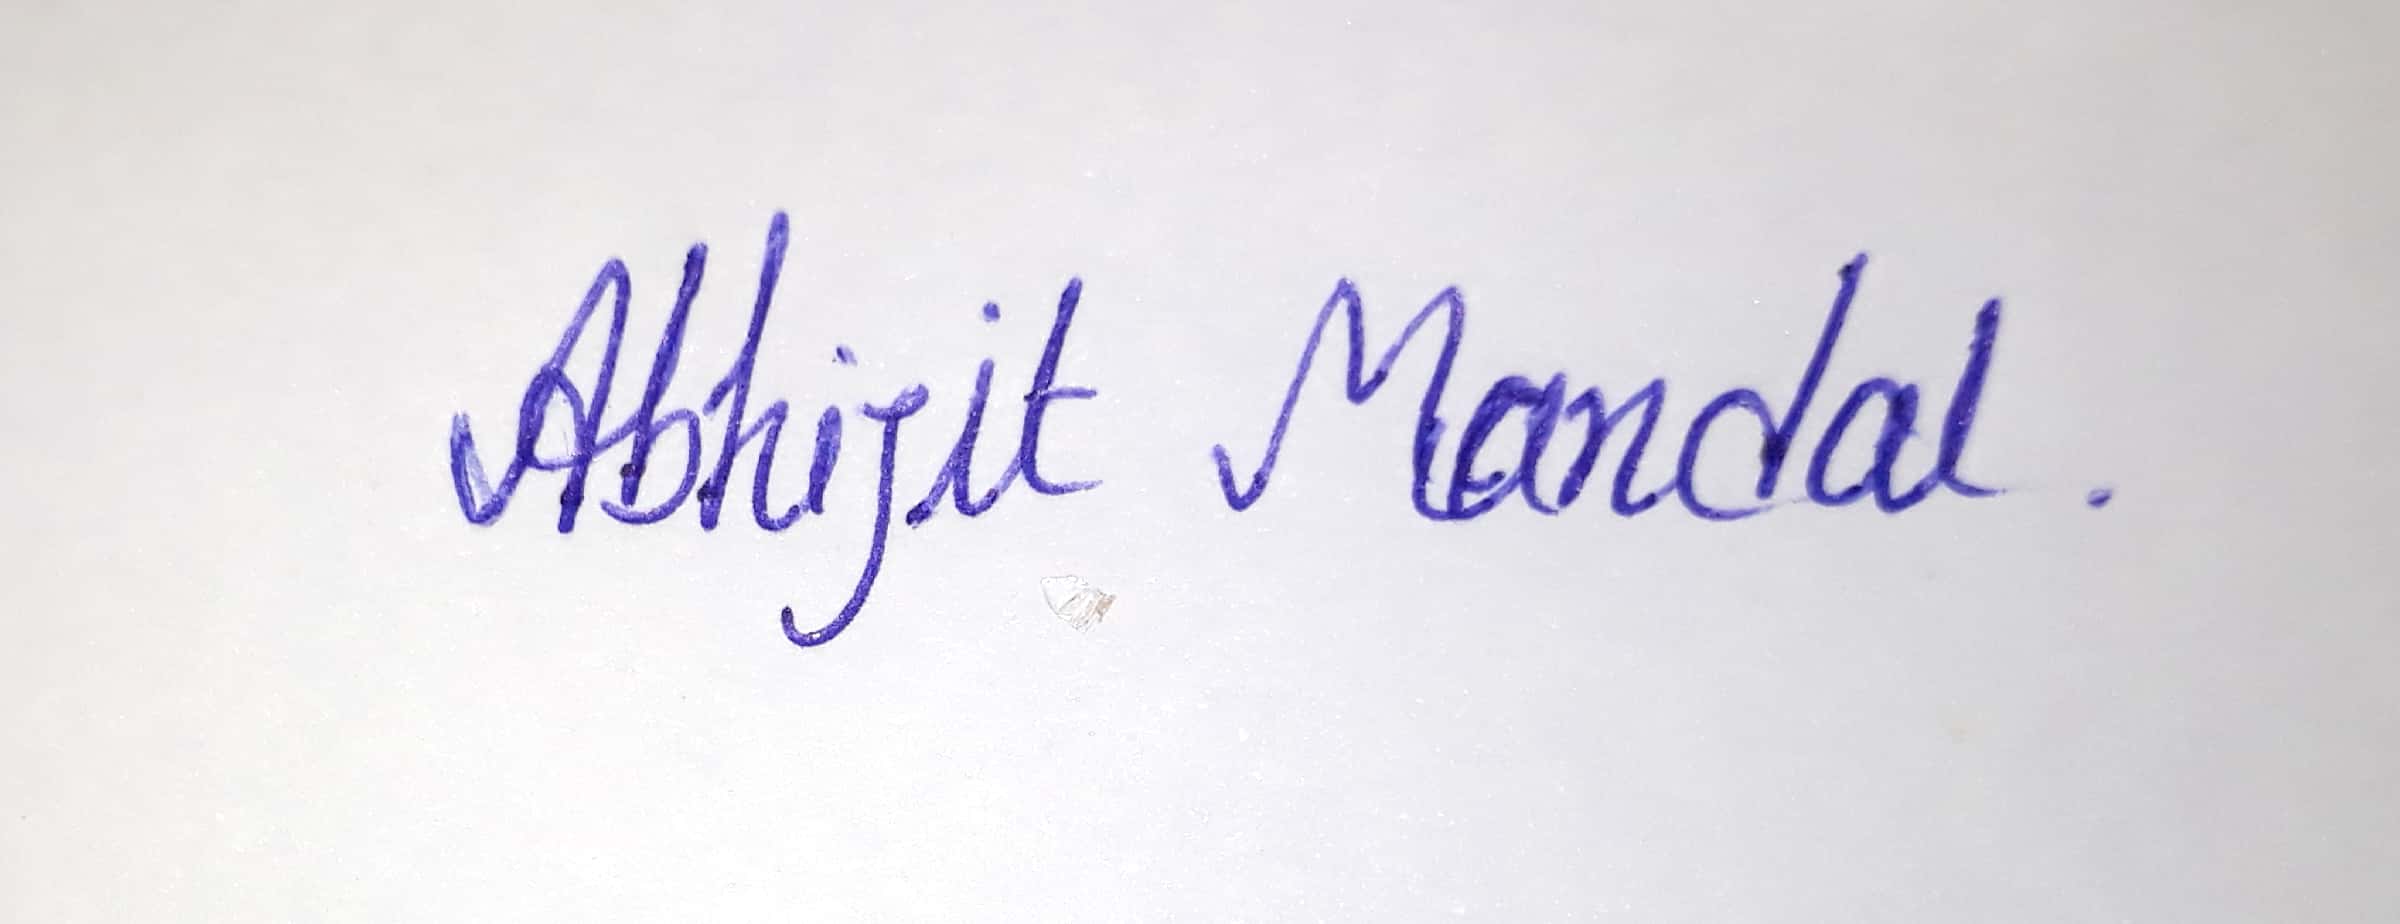 Abhijit Mandal.